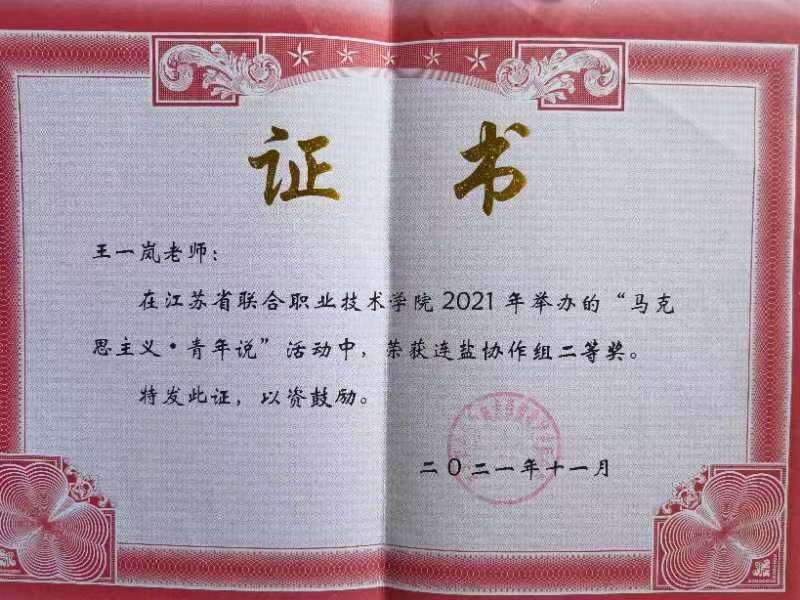 证 书
王一岚老师：
在江苏省联合职业技术学院2021年举办的“马克
思主义·青年说”活动中，荣获连盐协作组二等奖。
特发此证，以资鼓励。
二〇二一年十一月